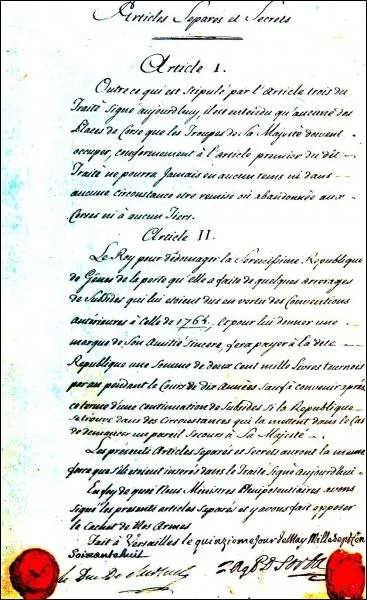 Articles Separés et Secrets
Article I.
Outre ce qui est stipulé par l'Article trois du
Traité signé aujourdhuy, il est entendu qu'aucune des
Places de Corse que les Troupes de Sa Majesté doivent
occuper, conformement à l'article premier du dit
Traité ne pourra Jamais en aucun tems ni dans
aucune circonstance etre remise ou abandonnée aux
Corses ni à aucun Tiers.
Article II.
Le Roy pour dédomager la Serenissime Republique
de Gênes de la perte qu'elle a faite de quelques arrerages
de Subsides qui lui etoient dus en vertu des Conventions
antérieures à Celle de 1764, et pour lui donner une
marque de Son Amitié Sincere, fera payer à la dite
Republique une Somme de deux Cent mille Livres tournois
par an pendant le Cours de dix Années sauf à convenir après
ce terme d'une continuation de Subsides si la Republique
se trouve dans des Circonstances qui la mettent dans le Cas
de demander un pareil Secours à Sa Majesté.
Les présents Articles Separés et Secrets auront la meme
force que s'ils etoient inserés dans le Traité Signé Aujourd'hui.
En foy de quoi Nous Ministres Plenipotentiaires avons
Signé les presents articles Separés et y avons fait apposer
le Cachet de Nos Armes
Fait à Versailles le quinzieme Jour de May Mille Sept Cen
Soixante huit
le Duc De Choiseul
Ag. Sorba